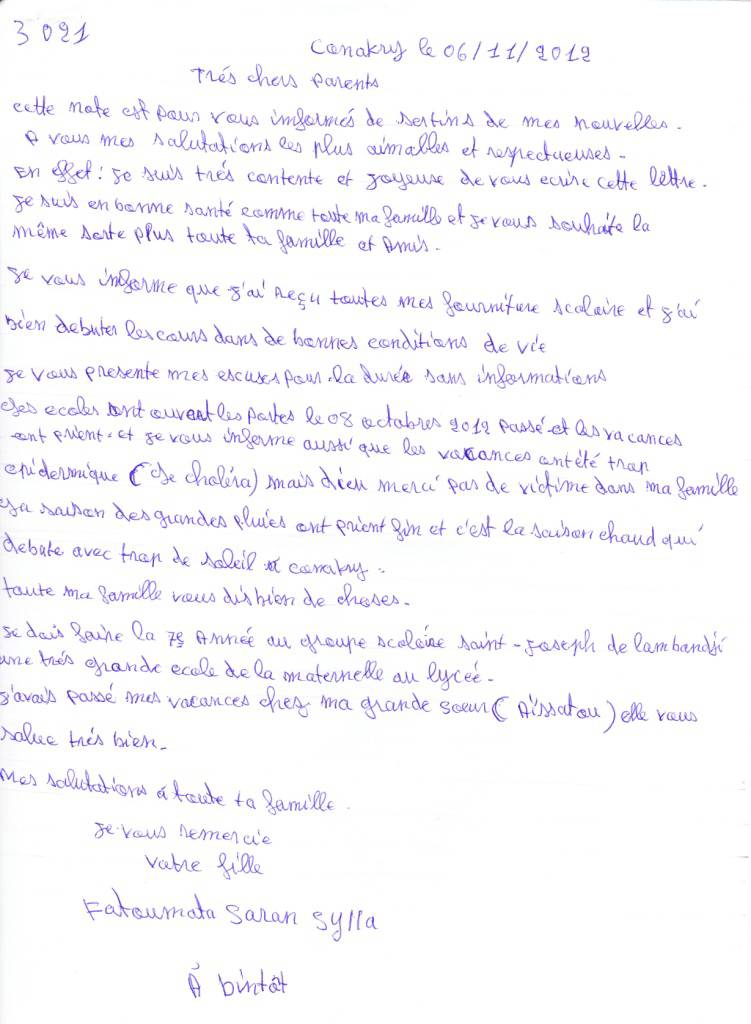 3021
Conakry le 06/11/2012
Trés chers parents
cette note est pour vous informés de sertins de mes nouvelles.
A vous mes salutations les plus aimables et respectueuses.
En effet : je suis trés contente et joyeuse de vous ecrire cette lettre.
je suis en bonne santé comme toute ma famille et je vous souhaite la
même sorte plus toute ta famille et Amis.
je vous informe que j'ai reçu toutes mes fourniture scolaire et j'ai
bien debuter les cours dans de bonnes conditions de vie
je vous presente mes escuses pour la durée sans informations
Les ecoles ont ouvert les portes le 08 octobres 2012 passé et les vacances
ont prient. et je vous informe aussi que les vacances ont été trop
epidermique (le choléra) mais dieu merci pas de victime dans ma famille
La saison des grandes pluies ont prient fin et c'est la saison chaud qui
debute avec trop de soleil a conakry.
toute ma famille vous dis bien de choses.
je dois faire la 7e Année au groupe scolaire saint-joseph de lambandji
une trés grande ecole de la maternelle au lyceé.
j'avais passé mes vacances chez ma grande soeur (Aïssatou) elle vous
salue trés bien.
Mes salutations à toute ta famille.
je vous remercie
votre fille
Fatoumata Saran Sylla
À bintôt